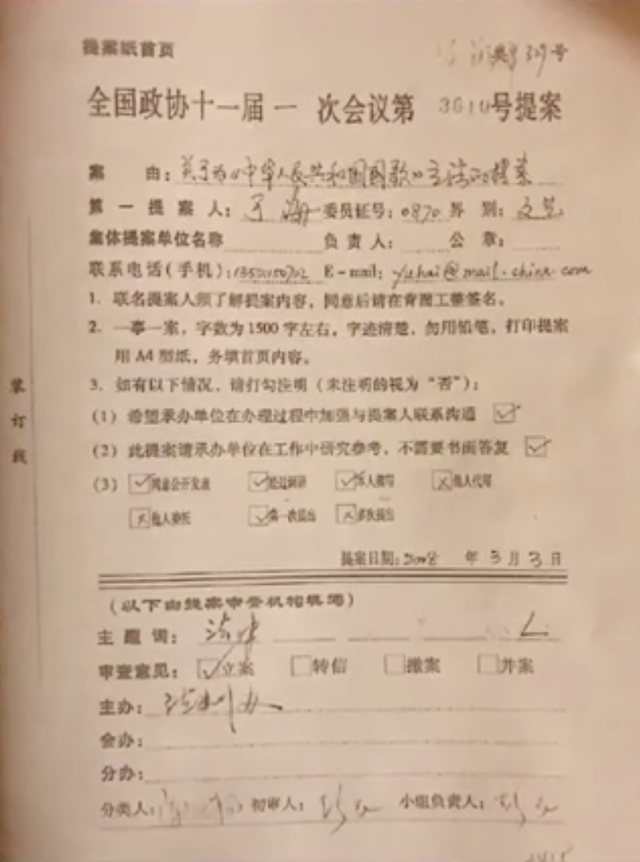 提案纸首页
329号
全国政协十一届一次会议第3610号提案
案 由：关于为《中华人民共和国国歌》立法的提案
第一提案人：于海 委员证号：0870 界别：文艺
集体提案单位名称 负责人： 公章：
联系电话(手机)： E-mail：yuhai@mail.china.com
1. 联名提案人须了解提案内容，同意后请在背面工整签名。
2. 一事一案，字数为1500字左右，字迹清楚，勿用铅笔，打印提案
用A4型纸，务填首页内容。
3. 如有以下情况，请打勾注明(未注明的视为“否”)：
(1) 希望承办单位在办理过程中加强与提案人联系沟通 ☑
(2) 此提案请承办单位在工作中研究参考，不需要书面答复 ☑
(3) ☑同意公开发表 ☑经过调研 ☑本人撰写 ☒他人代写
☒他人委托 ☑第一次提出 ☒多次提出
提案日期：2008 年 3 月 3 日
(以下由提案审查机构填写)
主题词：法律
审查意见：☑立案 □转信 □撤案 □并案
主办：法制办
会办：
分办：
分类人： 初审人： 小组负责人：
装订线